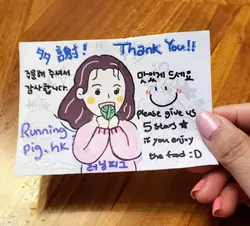 多謝! Thank You!!
주문해 주셔서
감사합니다.
맛있게 드세요
Please give us
5 stars ★
if you enjoy
the food :D
Running
Pig.hk
러닝피그